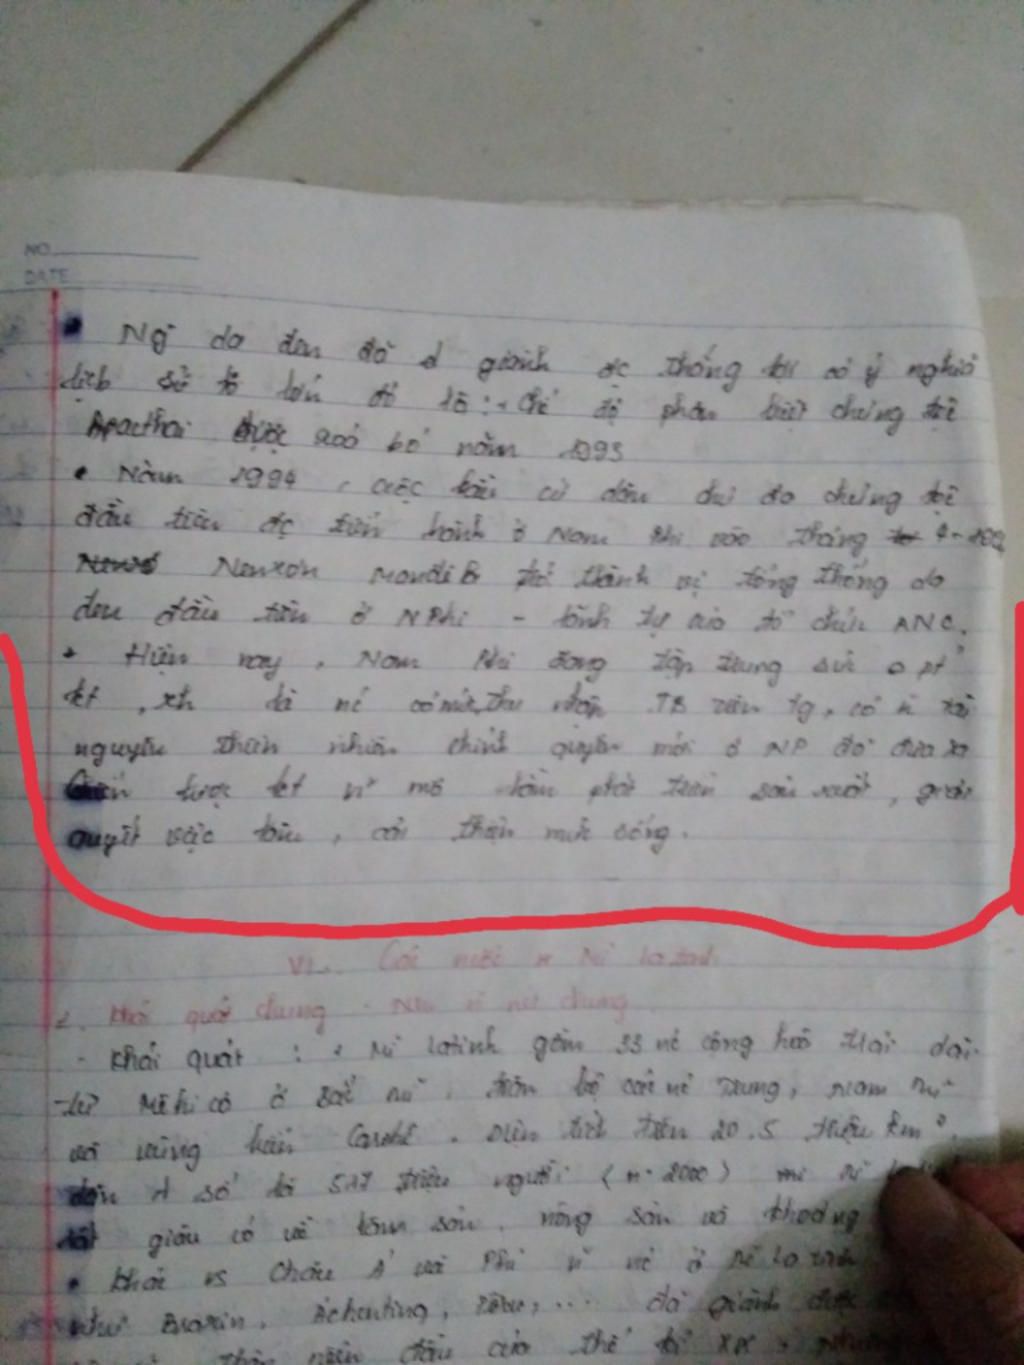 NO
DATE
Ng da đen đã giành đc thắng lợi có ý nghiã
lịch sử to lớn đó là: + Chế độ phân biệt chủng tộc
Apacthai được xoá bỏ năm 1993
• Năm 1994, cuộc bầu cử dân chủ đa chủng tộc
đầu tiên đc tiến hành ở Nam Phi vào tháng
trở thành vị tổng thống da
đen đầu tiên ở NPhi - lãnh tụ của tổ chức ANC.
• Hiện nay, Nam Phi đang tập trung sức pt
kt, xh là nc có mức thu nhập TB trên tg, có n tài
nguyên thiên nhiên chính quyền mới ở NP đã đưa ra
Chiến lược kt vĩ mô nhằm phát triển sản xuất, giải
quyết việc làm, cải thiện mức sống.
VI. Các nước Mĩ la tinh
1. Khái quát chung - chung
- Khái quát : + Mĩ latinh gồm 33 nc cộng hoà trải dài
từ Mêhicô ở Bắc Mĩ, toàn bộ các nc Trung, Nam Mĩ
và vùng biển Caribê. Diện tích trên 20.5 triệu km²,
dân số là 517 triệu người (n. 2000) Mĩ
rất giàu có về lâm sản, nông sản và khoáng
• Khác vs Châu Á và Phi n nc ở Mĩ la tinh
như Braxin, Achentina, Pêru, ... đã giành được
thập niên đầu của thế kỉ XIX